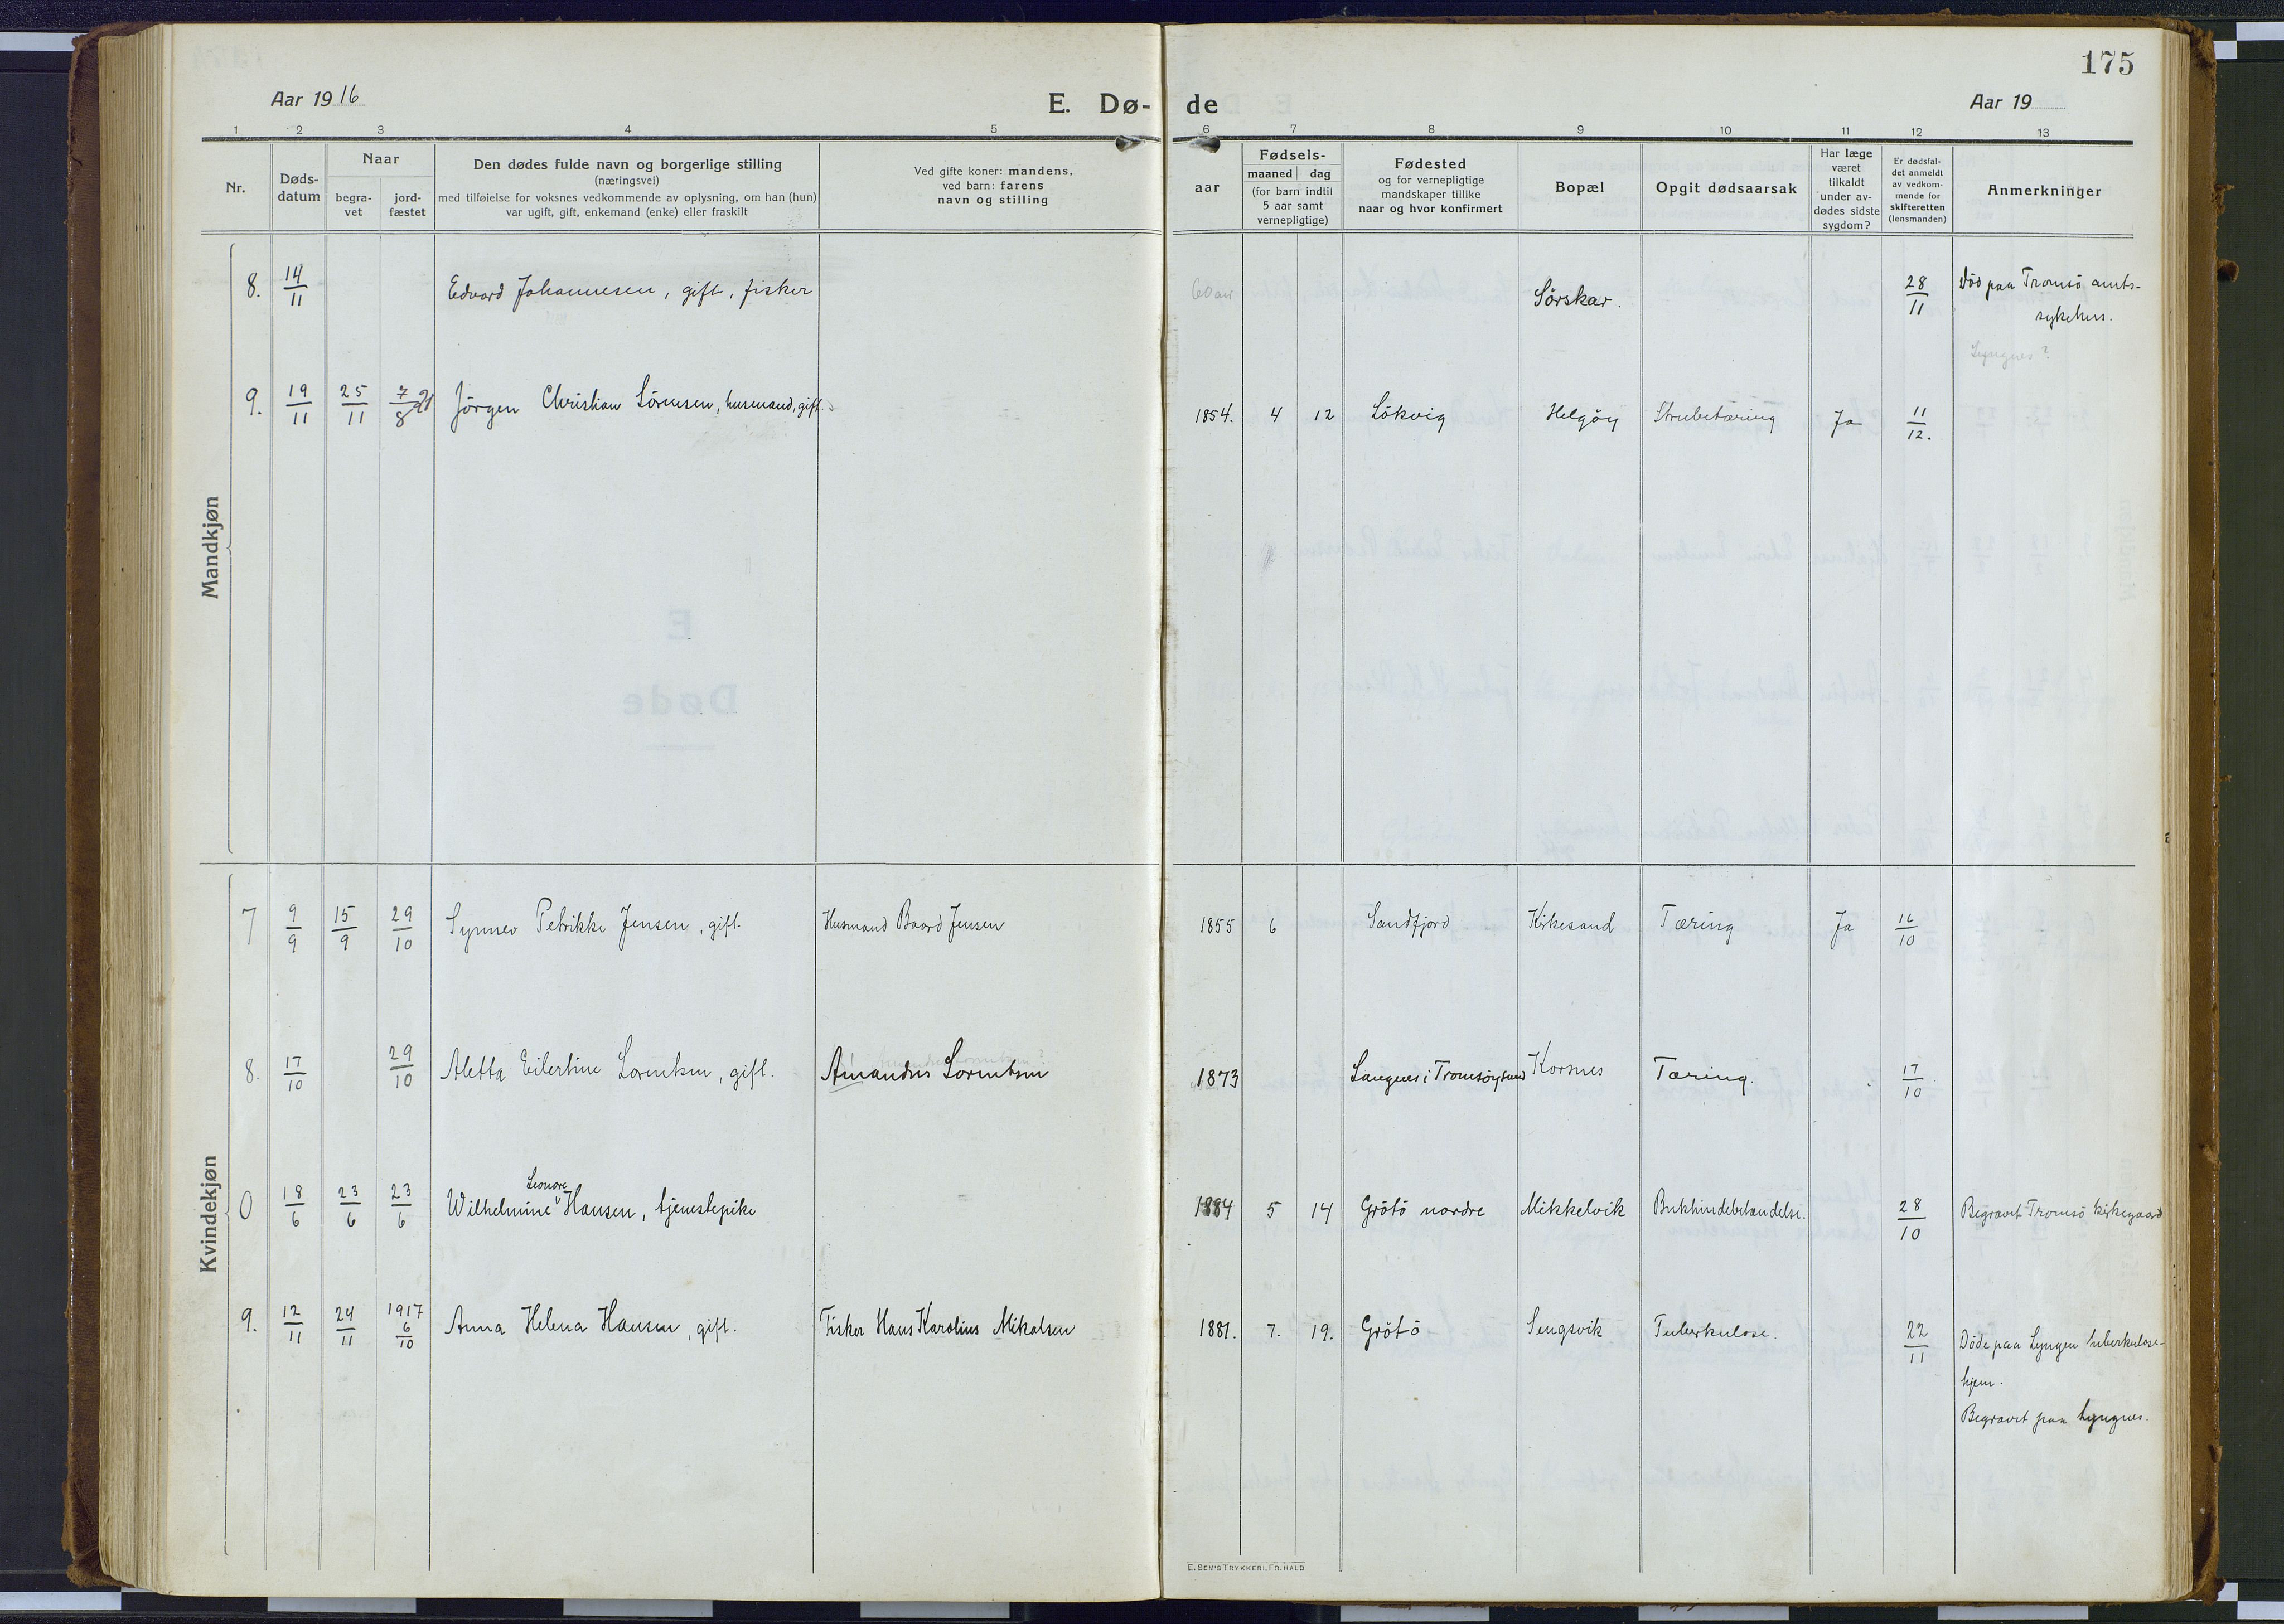 175
Aar 1916
E. Dø-
de
Aar 19
1 2 3 4 5 6 7 8 9 10 11 12 13
Nr.
Døds-
datum
Naar
begra-
vet
jord-
fæstet
Den dødes fulde navn og borgerlige stilling
(næringsvei)
med tilføielse for voksnes vedkommende av oplysning, om han (hun)
var ugift, gift, enkemand (enke) eller fraskilt
Ved gifte koner: mandens,
ved barn: farens
navn og stilling
aar
Fødsels-
maaned dag
(for barn indtil
5 aar samt
vernepligtige)
Fødested
og for vernepligtige
mandskaper tillike
naar og hvor konfirmert
Bopæl
Opgit dødsaarsak
Har læge
været
tilkaldt
under av-
dødes sidste
sygdom?
Er dødsfal-
det anmeldt
av vedkom-
mende for
skifteretten
(lensmanden)
Anmerkninger
Mandkjøn
8. 14/11 Edvard Johannesen, gift, fisker 60 aar Sörskar. 28/11 Död paa Tromsö amts-
sykehus.
Lyngnes?
9. 19/11 25/11 7/8 21 Jörgen Christian Sörensen, husmand, gift. 1854. 4 12 Lökvig Helgöy Strubetæring Ja 11/12.
E
Døde
Kvindekjøn
7 9/9 15/9 29/10 Synnev Petrikke Jensen, gift. Husmand Baard Jensen 1855 6 Sandfjord Kirkesand Tæring Ja 16/10
8. 17/10 29/10 Aletta Eilertine Lorentsen, gift. Amandus Lorentsen 1873 Langnes i Tromsöysund Korsnes Tæring. 17/10
Leonore
0 18/6 23/6 23/6 Wilhelmine Hansen, tjenestepike 1884 5 14 Grötö nordre Mikkelvik Bukhindebetændelse. 28/10 Begravet Tromsö kirkegaard
9. 12/11 24/11 1917 6/10 Anna Helena Hansen, gift. Fisker Hans Karolius Mikalsen 1881. 7. 19. Grötö Sengsvik Tuberkulose. 22/11 Döde paa Lyngen tuberkulose-
hjem.
Begravet paa Lyngnes.
E. SEM'S TRYKKERI, FR. HALD